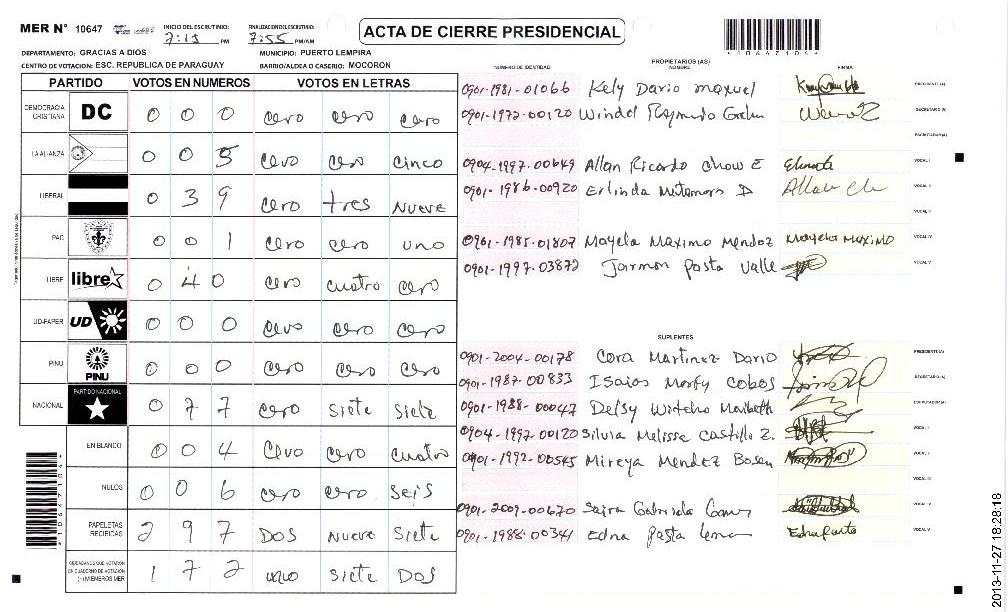 MER N° 10647 INICIO DEL ESCRUTINIO: 7:15 PM FINALIZACION DEL ESCRUTINIO: 7:55 PM/AM ACTA DE CIERRE PRESIDENCIAL
* 1 0 6 4 7 1 0 4 *
DEPARTAMENTO: GRACIAS A DIOS MUNICIPIO: PUERTO LEMPIRA
CENTRO DE VOTACION: ESC. REPUBLICA DE PARAGUAY BARRIO/ALDEA O CASERIO: MOCORON
PARTIDO VOTOS EN NUMEROS VOTOS EN LETRAS
DEMOCRACIA CRISTIANA DC 0 0 0 cero cero cero
LA ALIANZA 0 0 5 cero cero cinco
LIBERAL 0 3 9 cero tres Nueve
PAC 0 0 1 cero cero uno
LIBRE libre 0 4 0 cero cuatro cero
UD-FAPER UD 0 0 0 cero cero cero
PINU PINU 0 0 0 cero cero cero
NACIONAL PARTIDO NACIONAL 0 7 7 cero siete siete
EN BLANCO 0 0 4 cero cero cuatro
NULOS 0 0 6 cero cero seis
PAPELETAS RECIBIDAS 2 9 7 DOS Nueve Siete
CIUDADANOS QUE VOTARON EN CUADERNO DE VOTACION (+) MIEMBROS MER 1 7 2 uno siete DOS
PROPIETARIOS (AS)
NUMERO DE IDENTIDAD NOMBRE FIRMA
0901-1981-01066 Kely Dario maxuel PRESIDENTE (A)
0901-1972-00120 Windel Raymundo SECRETARIO (A)
ESCRUTADOR (A)
0904-1997-00649 Allan Ricardo Chow E VOCAL I
0901-1986-00920 Erlinda D Allan VOCAL II
VOCAL III
0901-1985-01807 Mayela Maximo Mendoz Mayela Maximo VOCAL IV
0901-1997-03872 Jarmon Pasta Valle VOCAL V
SUPLENTES
0901-2004-00178 Cora Martinez Dario PRESIDENTE (A)
0901-1987-00833 Isaias Cobos SECRETARIO (A)
0901-1988-00047 Delsy Maribeth ESCRUTADOR (A)
0904-1992-00120 Silvia Melissa Castillo Z. VOCAL I
0901-1992-00545 Mireya Mendez VOCAL II
VOCAL III
0901-2009-00670 Gabriela VOCAL IV
0901-1988-00341 Edna Pasta VOCAL V
2013-11-27 18:28:18